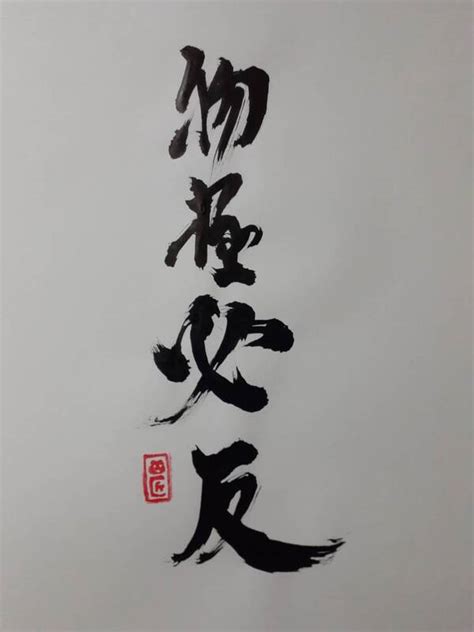 物極必反